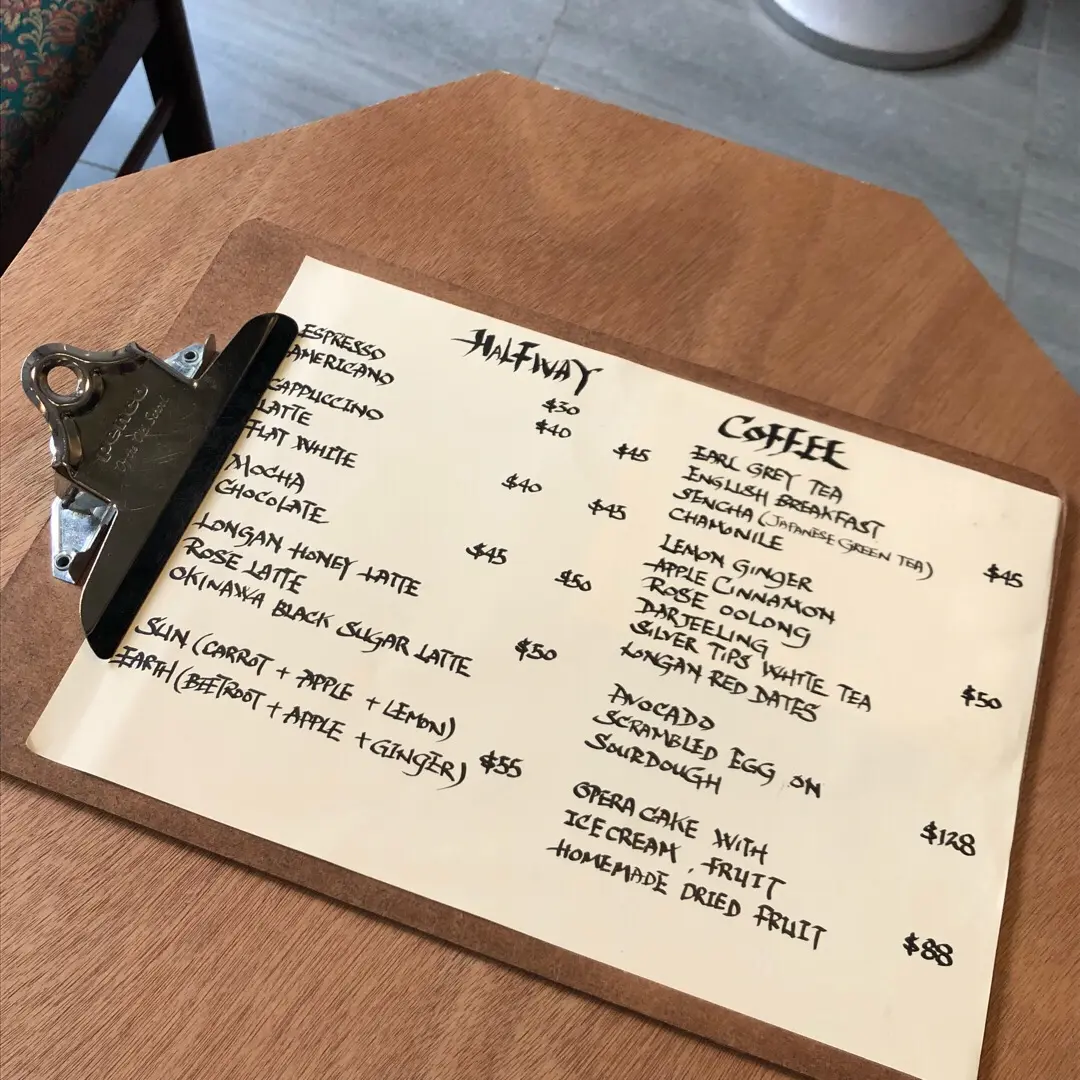 HALFWAY COFFEE
ESPRESSO $30
AMERICANO $40 $45
CAPPUCCINO
LATTE $40 $45
FLAT WHITE
MOCHA
CHOCOLATE $45 $50
LONGAN HONEY LATTE
ROSE LATTE
OKINAWA BLACK SUGAR LATTE $50
SUN (CARROT + APPLE + LEMON)
EARTH (BEETROOT + APPLE + GINGER) $55
EARL GREY TEA
ENGLISH BREAKFAST
SENCHA (JAPANESE GREEN TEA)
CHAMONILE $45
LEMON GINGER
APPLE CINNAMON
ROSE OOLONG
DARJEELING
SILVER TIPS WHITE TEA
LONGAN RED DATES $50
AVOCADO
SCRAMBLED EGG ON
SOURDOUGH $128
OPERA CAKE WITH
ICE CREAM, FRUIT
HOMEMADE DRIED FRUIT $88